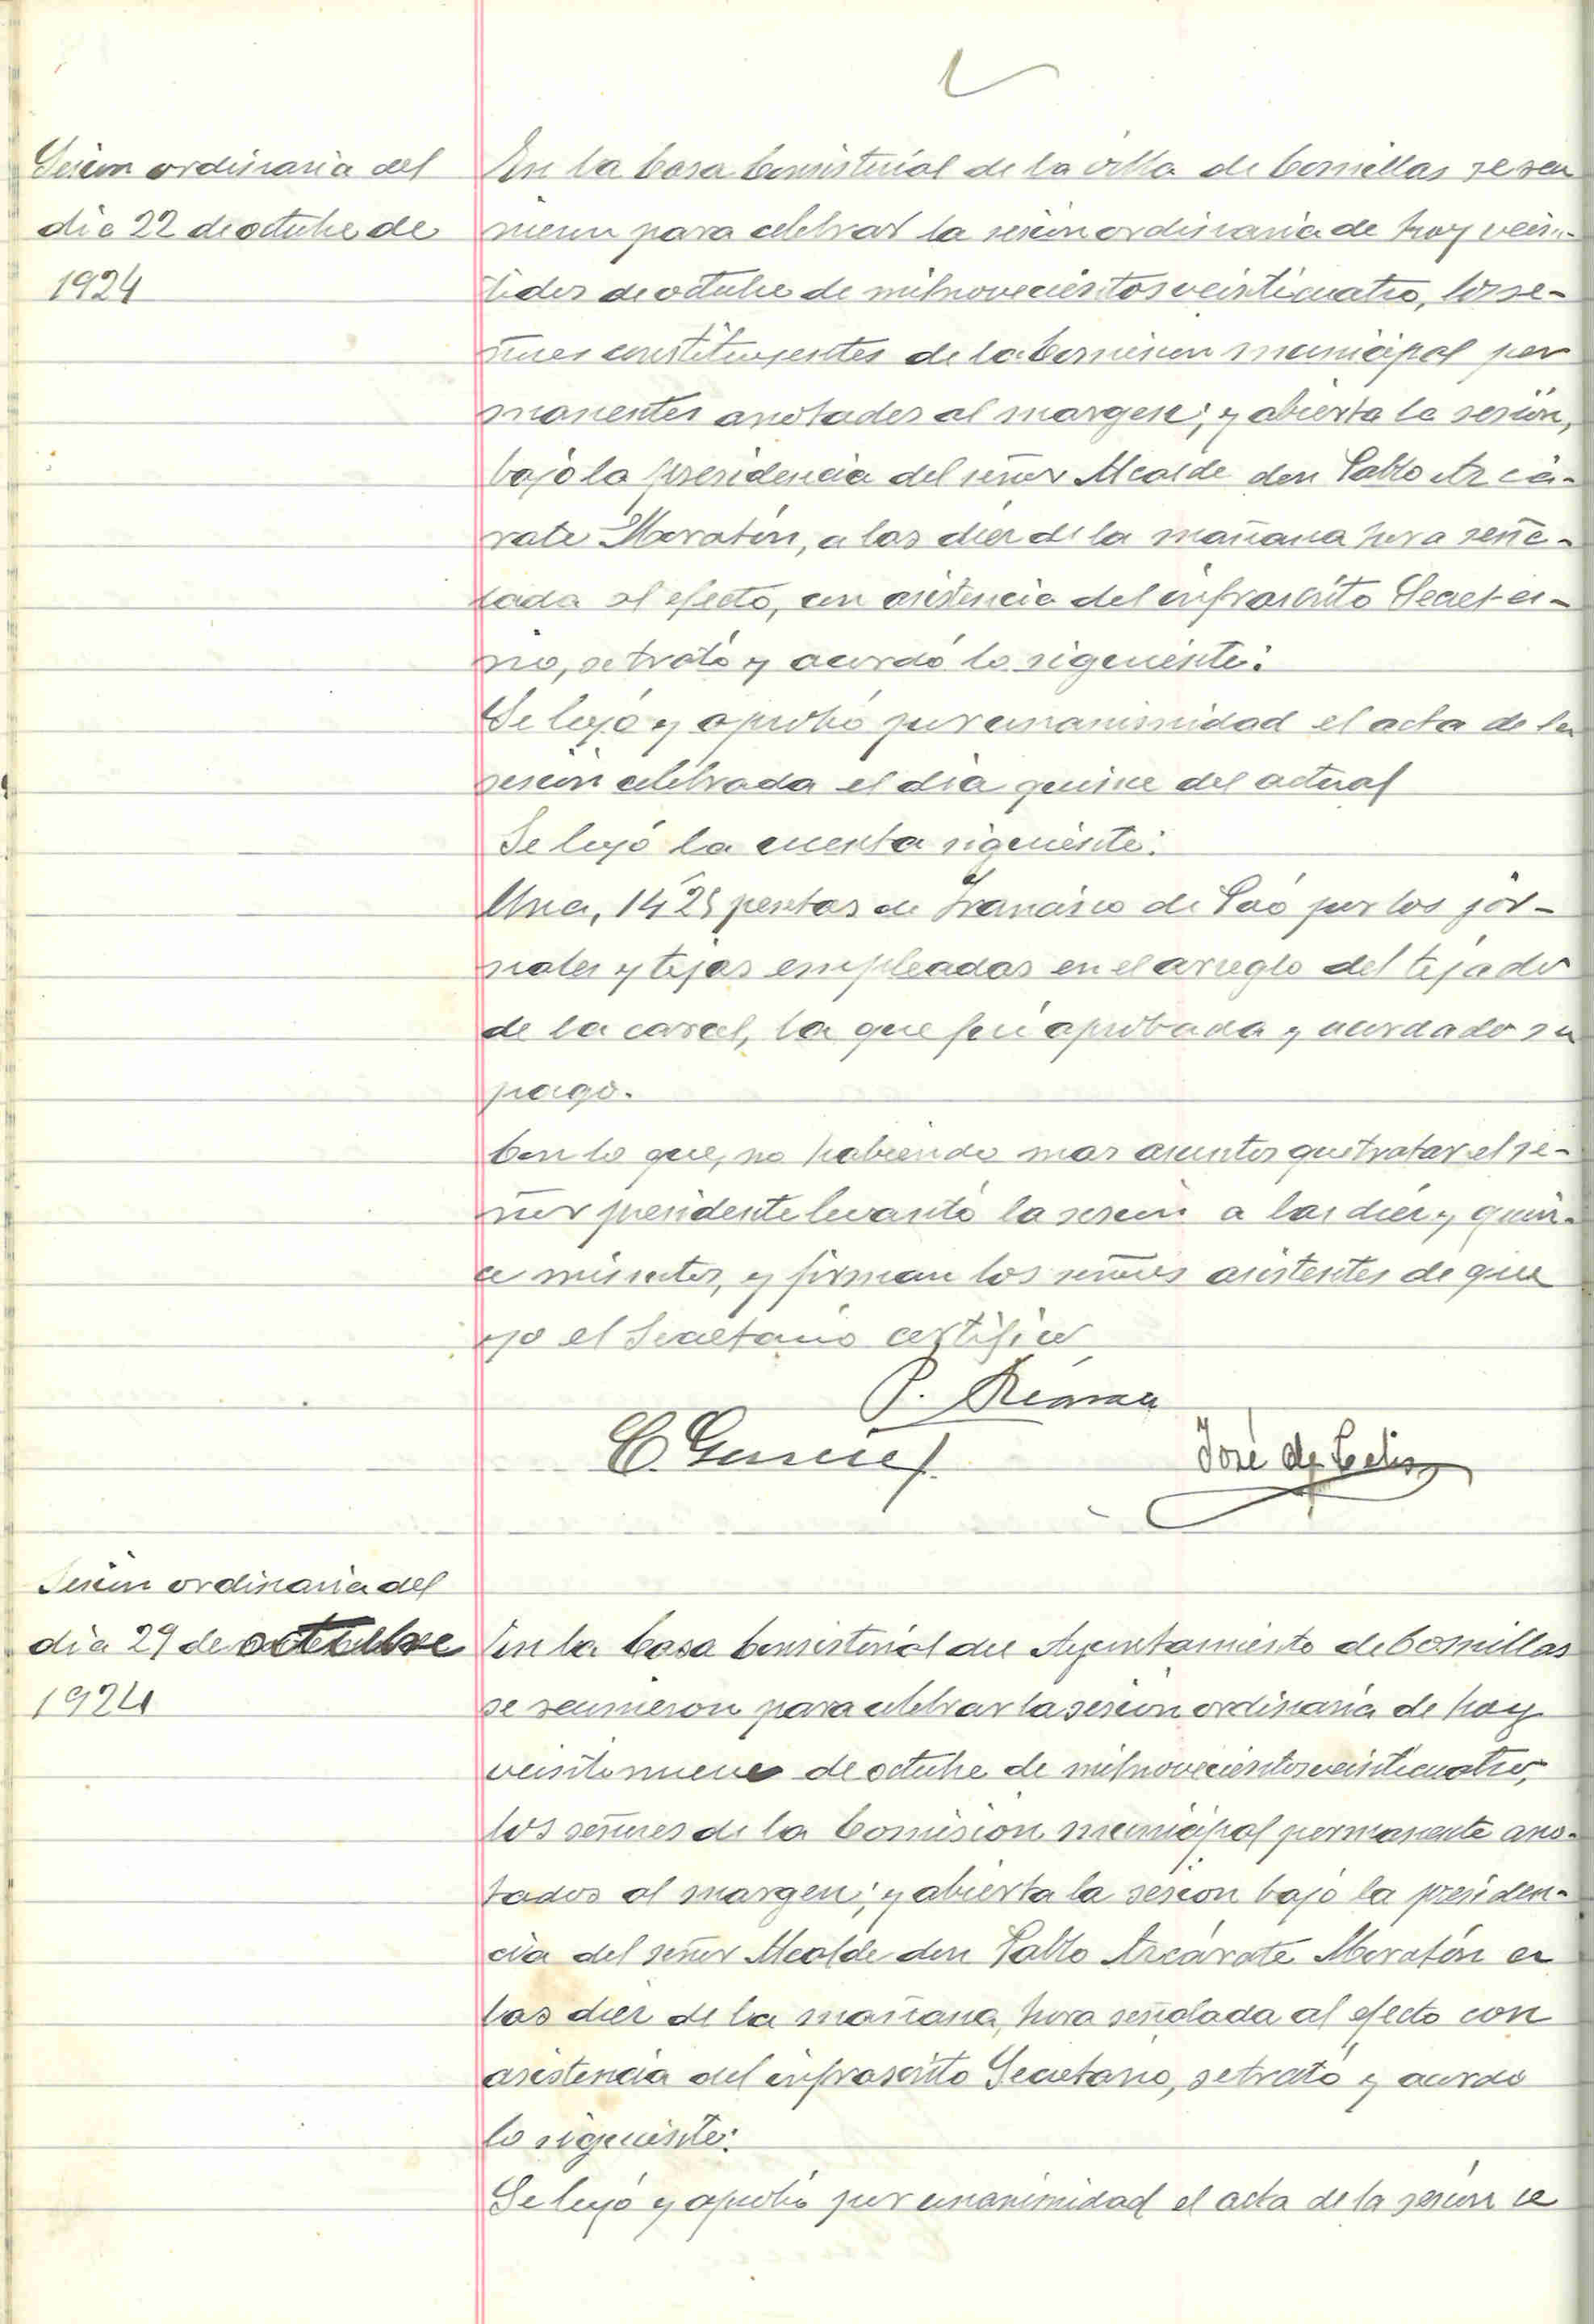 Sesion ordinaria del
dia 22 de octubre de
1924
En la Casa Consistorial de la villa de Comillas se reu
nieron para celebrar la sesión ordinaria de hoy vein-
tidos de octubre de mil novecientos veinticuatro, los se-
ñores constituyentes de la Comision municipal per
manentes anotados al margen; y abierta la sesión,
bajo la presidencia del señor Alcalde don Pablo Azcá-
rate Moratón, a las diez de la mañana hora seña-
lada al efecto, con asistencia del infrascrito Secreta-
rio, se trató y acordó lo siguiente:
Se leyó y aprobó por unanimidad el acta de la
sesión celebrada el dia quince del actual
Se leyó la cuenta siguiente:
Una, 14'25 pesetas de Francisco de Saó por los jor-
nales y tejas empleadas en el arreglo del tejado
de la carcel, la que fué aprobada y acordado su
pago.
Con lo que, no habiendo mas asuntos que tratar el se-
ñor presidente levantó la sesión a las diez y quin-
ce minutos, y firman los señores asistentes de que
yo el Secretario certifico
P.
C.
José de Celis
Sesión ordinaria del
dia 29 de octubre
1924
En la Casa Consistorial del Ayuntamiento de Comillas
se reunieron para celebrar la sesión ordinaria de hoy
veintinueve de octubre de mil novecientos veinticuatro,
los señores de la Comisión municipal permanente ano-
tados al margen; y abierta la sesion bajo la presiden-
cia del señor Alcalde don Pablo Azcárate Moratón a
las diez de la mañana, hora señalada al efecto con
asistencia del infrascrito Secretario, se trató y acordo
lo siguiente:
Se leyó y aprobó por unanimidad el acta de la sesión ce